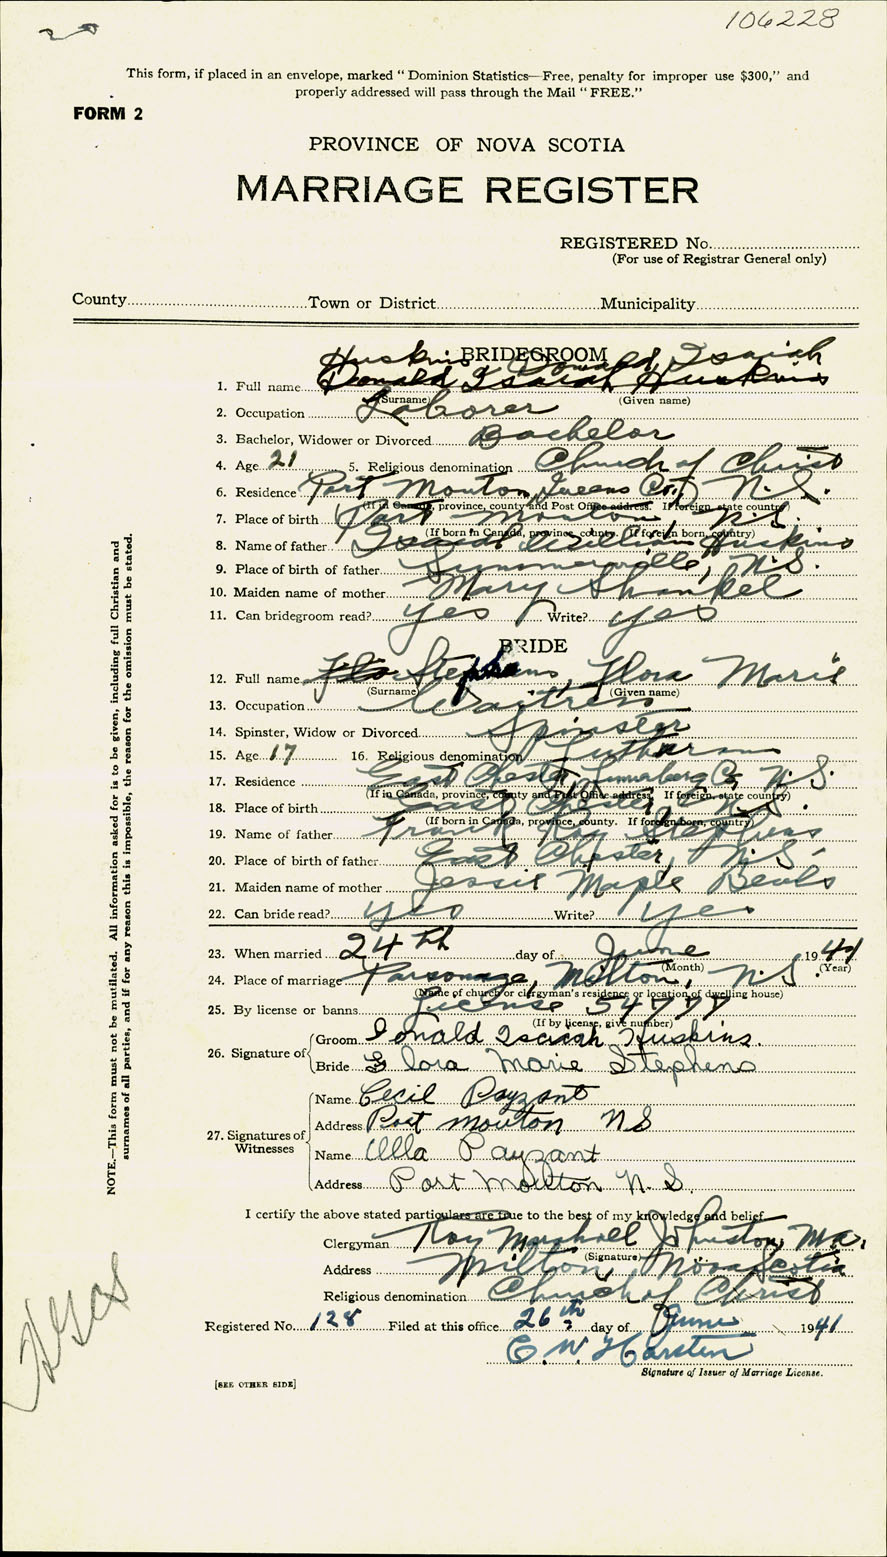 106228
This form, if placed in an envelope, marked "Dominion Statistics—Free, penalty for improper use $300," and
properly addressed will pass through the Mail "FREE."
FORM 2
PROVINCE OF NOVA SCOTIA
MARRIAGE REGISTER
REGISTERED No.
(For use of Registrar General only)
County Town or District Municipality
BRIDEGROOM
Huskins Donald Isaiah
1. Full name Donald Isaiah Huskins
(Surname) (Given name)
2. Occupation Laborer
3. Bachelor, Widower or Divorced Bachelor
4. Age 21 5. Religious denomination Church of Christ
6. Residence Port Mouton, Queens Co., N.S.
(If in Canada, province, county and Post Office address. If foreign, state country)
7. Place of birth Port Mouton, N.S.
(If born in Canada, province, county. If foreign born, country)
8. Name of father Isaiah William Huskins
9. Place of birth of father Summerville, N.S.
10. Maiden name of mother Mary Shankel
11. Can bridegroom read? yes Write? yes
BRIDE
12. Full name Flo Stephens, Flora Marie
(Surname) (Given name)
13. Occupation Waitress
14. Spinster, Widow or Divorced Spinster
15. Age 17 16. Religious denomination Lutheran
17. Residence East Chester, Lunenberg Co., N.S.
(If in Canada, province, county and Post Office address. If foreign, state country)
18. Place of birth East Chester, N.S.
(If born in Canada, province, county. If foreign born, country)
19. Name of father Frank Roy Stephens
20. Place of birth of father East Chester, N.S.
21. Maiden name of mother Jessie Maple Beals
22. Can bride read? yes Write? yes
23. When married 24th day of June 1941
(Month) (Year)
24. Place of marriage Parsonage, Milton, N.S.
(Name of church or clergyman's residence or location of dwelling house)
25. By license or banns License
(If by license, give number)
26. Signature of Groom Donald Isaiah Huskins.
Bride Flora Marie Stephens
27. Signatures of Witnesses Name Cecil Payzant
Address Port Mouton NS
Name Ulla Payzant
Address Port Moulton N.S.
I certify the above stated particulars are true to the best of my knowledge and belief.
Clergyman Roy Marshall Johnston, M.A.
(Signature)
Address Milton, Nova Scotia
Religious denomination Church of Christ
Registered No. 128 Filed at this office 26th day of June 1941
E. W. Harsten
Signature of Issuer of Marriage License.
[SEE OTHER SIDE]
NOTE.—This form must not be mutilated. All information asked for is to be given, including full Christian and
surnames of all parties, and if for any reason this is impossible, the reason for the omission must be stated.